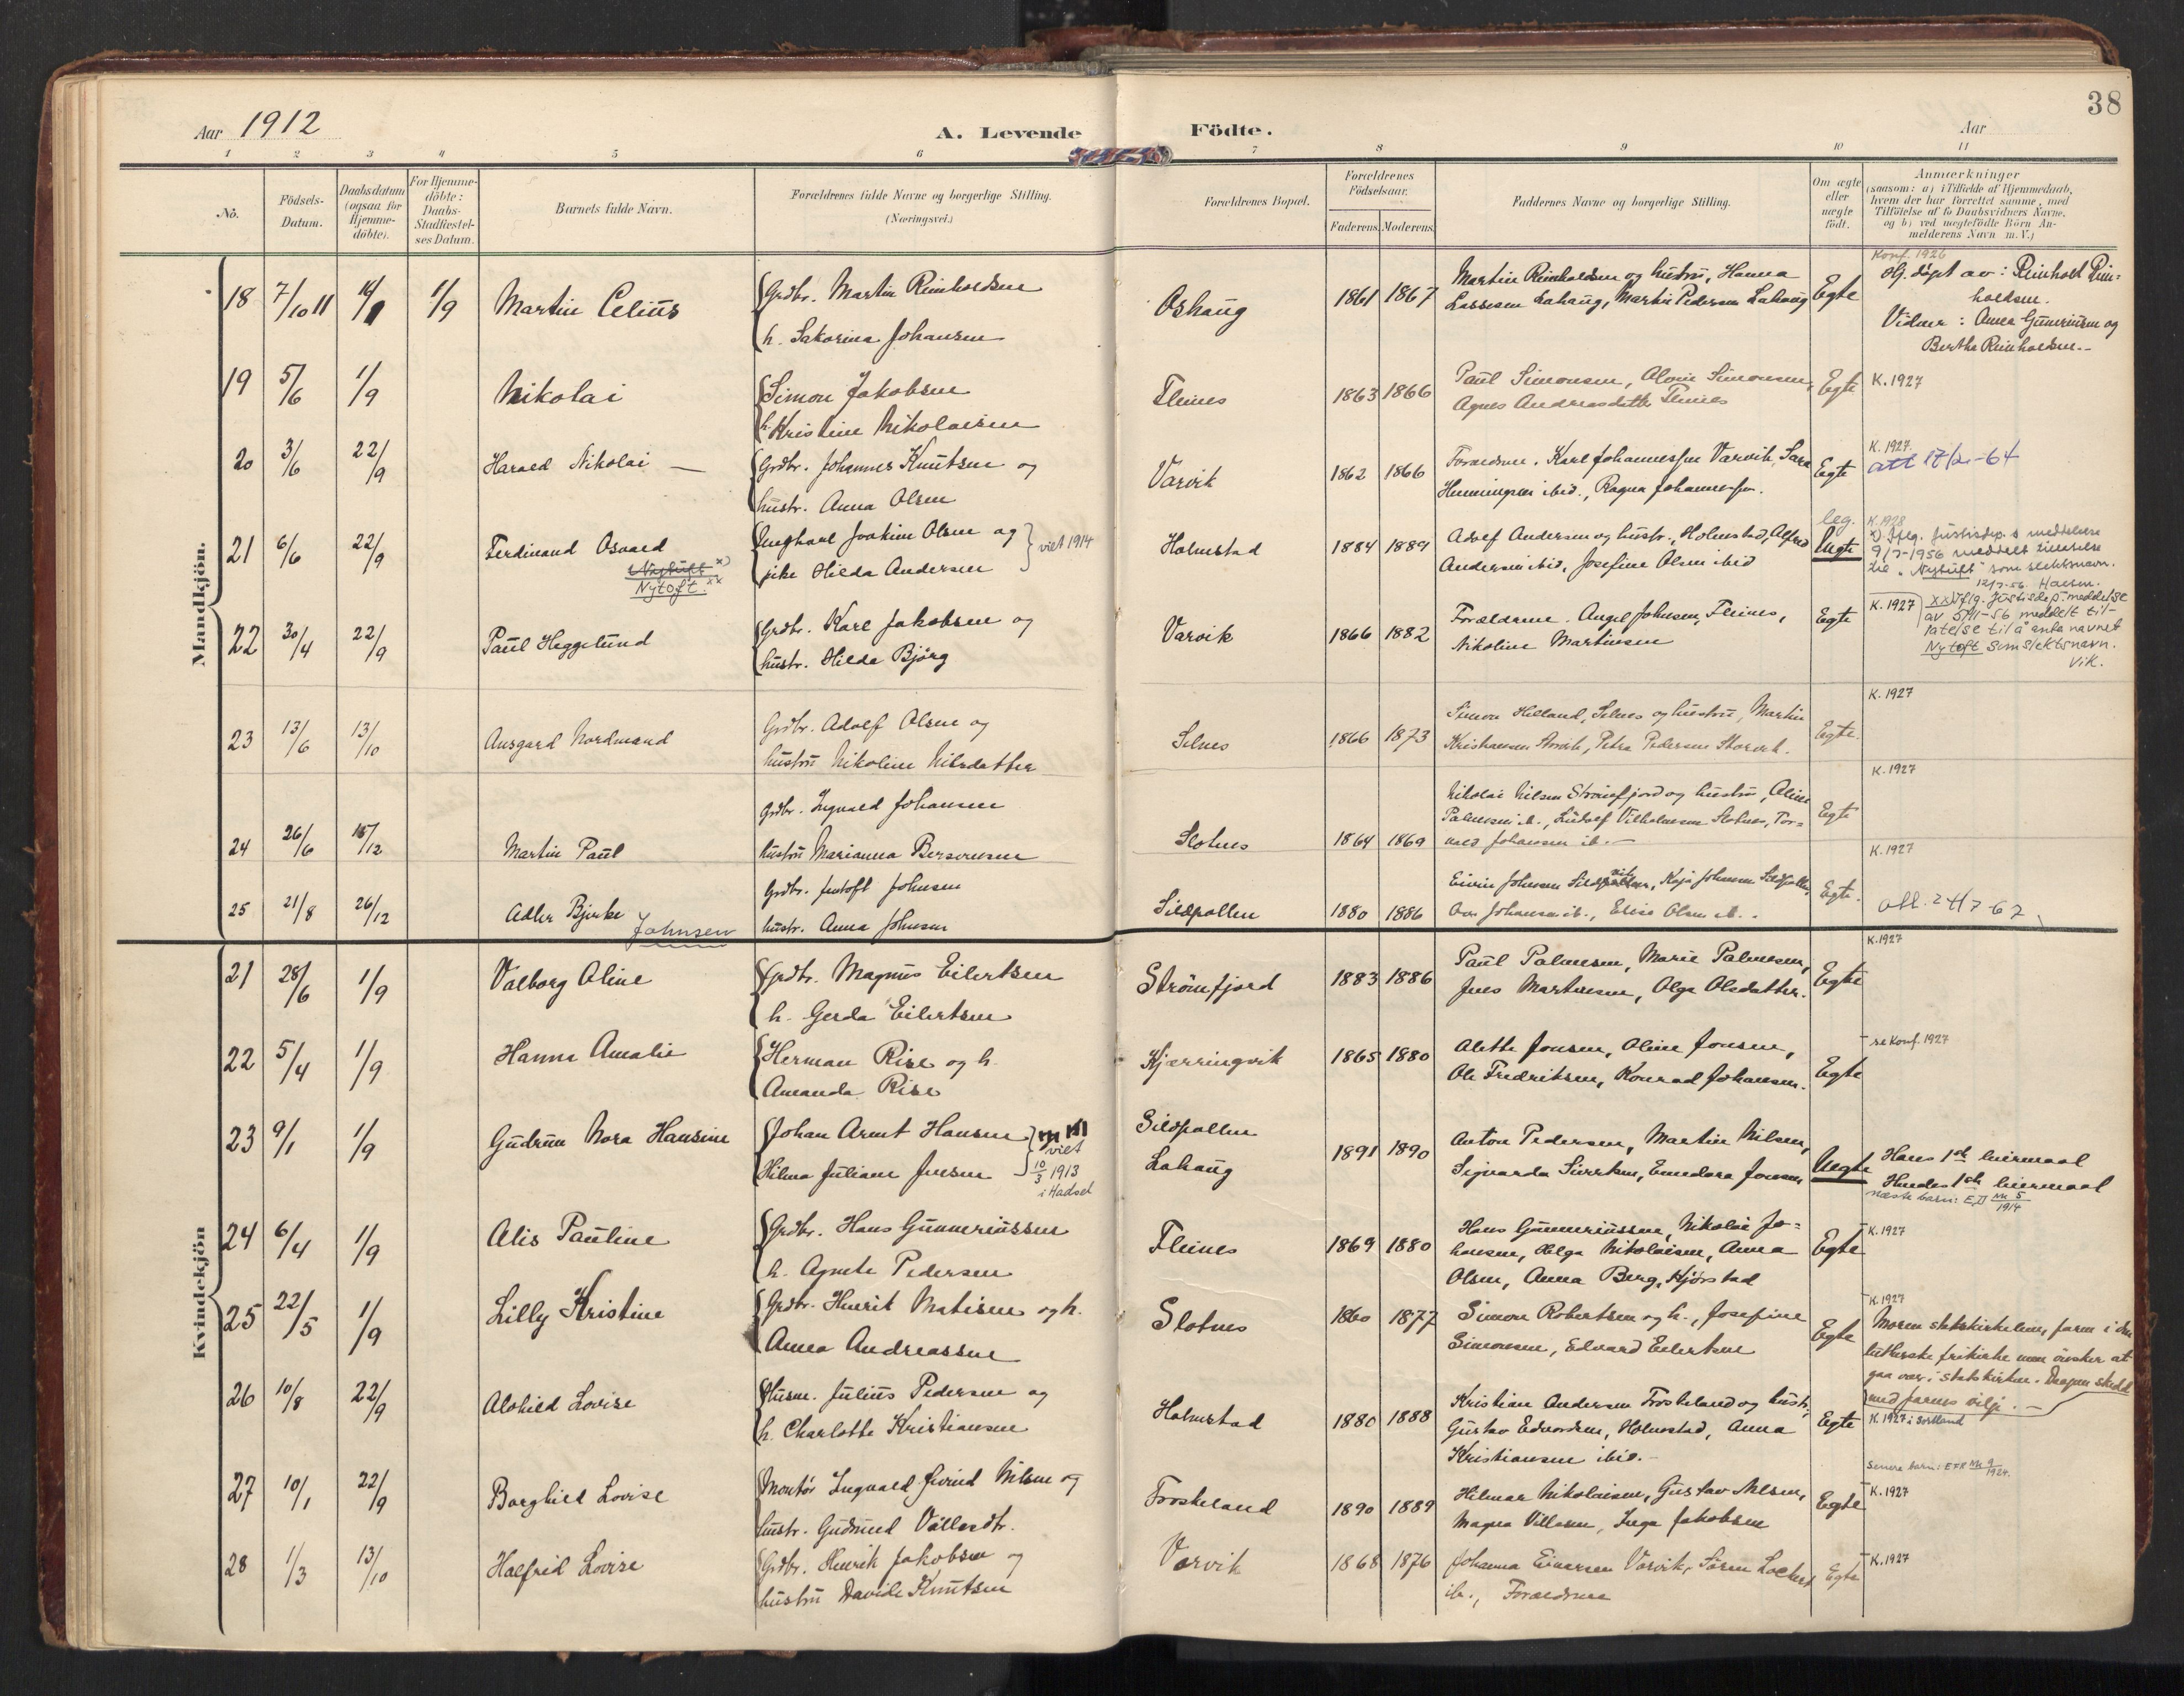 38
Aar 1912
A. Levende Födte.
Aar
1 2 3 4 5 6 7 8 9 10 11
No.
Födsels-
Datum.
Daabsdatum
(ogsaa for
Hjemme-
döbte).
For Hjemme-
döbte:
Daabs-
Stadfæstel-
ses Datum.
Barnets fulde Navn.
Forældrenes fulde Navne og borgerlige Stilling.
(Næringsvei.)
Forældrenes Bopæl.
Forældrenes
Födselsaar.
Faderens. Moderens.
Faddernes Navne og borgerlige Stilling.
Om ægte
eller
uægte
födt.
Anmærkninger
(saasom: a) i Tilfælde af Hjemmedaab,
hvem der har forrettet samme, med
Tilföielse af to Daabsvidners Navne,
og b) ved uægtefödte Börn An-
melderens Navn m. V.)
Mandkjön.
18 7/10 11 1/9 Martin Celius
Grdbr. Martin Reinholdsen
h. Sakorina Johansen
Oshaug 1861 1867
Martin Reinholdsen og hustru, Hanna
Lassesen Lahaug, Martin Pedersen Lahaug
Egte
Konf. 1926
Hj. döpt av: Reinholt Rein-
holdsen.
Vidner: Anna Guneriusen og
Bertha Reinholdsen.
19 5/6 1/9 Nikolai
Simon Jakobsen
h. Kristine Nikolaisen
Fleines 1863 1866
Paul Simonsen, Alovie Simonsen,
Agnes Andreasdatter Fleines
Egte K. 1927
20 3/6 22/9 Harald Nikolai
Grdbr. Johannes Knutsen og
hustr. Anna Olsen
Varvik 1862 1866
Forældrene. Karl Johannessen Varvik, Sara
Henningsen ibid., Ragna Johannessen.
Egte
K. 1927
att 17/2-64
21 6/6 22/9 Ferdinand Osvald
Nytuft x)
Nytoft. xx
Ungkarl Joakim Olsen og
pike Hilda Andersen
viet 1914
Holmstad 1884 1889
Adolf Andersen og hustr., Holmstad, Alfred
Andersen ibid, Josefine Olsen ibid
leg.
Uegte
K. 1928
x) Iflg. Justisdep.s meddelelse
9/3-1956 meddelt tillatelse
til "Nytuft" som slektsnavn.
12/3-56.
22 30/4 22/9 Paul Heggelund
Grdbr. Karl Jakobsen og
hustr. Hilda Björg
Varvik 1866 1882
Forældrene. Angel Johnsen, Fleines,
Nikoline Martinsen
Egte
K. 1927
xx) Iflg. Justisdep. meddelse
av 5/11-56 meddelt til-
latelse til å anta navnet
Nytoft som slektsnavn.
Vik.
23 13/6 13/10 Ansgard Nordmand
Grdbr. Adolf Olsen og
hustru Nikoline Nilsdatter
Selnes 1866 1873
Simon Helland, Selnes og hustru, Martin
Kristiansen Arvik, Petra Pedersen Storvik.
Egte. K. 1927
24 26/6 /12 Martin Paul
Grdbr. Ingvald Johansen
hustru Marianna Bersvensen
Slotnes 1864 1869
Nikolai Nilsen Strömfjord og hustru, Aline
Palmesen ib., Ludolf Vilhelmsen Slotnes, Tor-
mod Johansen ib.
Egte
K. 1927
K. 1927
25 21/8 26/12 Adler Bjerke
Johnsen
Grdbr. Jentoft Johnsen
hustr. Anna Johnsen
Sildpollen 1880 1886
Eivin Johnsen, Kaja Johnsen Sildpollen,
Johansen ib., Elise Olsen ib.
Egte. att. 24/7-67
Kvindekjön
21 28/6 1/9 Valborg Oline
Grdbr. Magnus Eilertsen
h. Gerda Eilertsen
Strömfjord 1883 1886
Paul Palmesen, Marie Palmesen,
Jens Martinsen, Olga Olsdatter.
Egte K. 1927
22 5/4 1/9 Hanna Amalie
Herman Rise og h.
Amanda Rise
Kjærringvik 1865 1880
Alette Jonsen, Oline Jonsen,
Ole Fredriksen, Konrad Johansen.
Egte se Konf. 1927
23 9/1 1/9 Gudrun Nora Hansine
Johan Arnt Hansen
Hilma Juliane Jensen
viet
10/3 1913
i Hadsel
Sildpollen
Lahaug
1891 1890
Anton Pedersen, Martin Nilsen,
Signarda Sivertsen, Emedora Jonsen
Uegte
Hans 1ste leiermaal
Hendes 1ste leiermaal
næste barn: E, Nr. 5/1914
24 6/4 1/9 Alis Pauline
Grdbr. Hans Gunneriussen
h. Agnete Pedersen
Fleines 1869 1880
Hans Gunneriussen, Nikolai Jo-
hansen, Helga Nikolaisen, Anna
Olsen, Anna Berg, Hjörstad
Egte K. 1927
25 22/5 1/9 Lilly Kristine
Grdbr. Henrik Matisen og h.
Anna Andreassen
Slotnes 1860 1877
Simon Robertsen og h., Josefine
Simonsen, Edvard Eilertsen
Egte
K. 1927
Moren statskirkelem, faren i den
lutherske frikirke men önsker at
gaa over i statskirken. Daapen skedde
med farens vilje.
26 10/8 22/9 Alvhild Lovise
Husm. Julius Pedersen og
h. Charlotte Kristiansen
Holmstad 1880 1888
Kristian Andersen Froskeland og hustr.,
Gustav Edvardsen, Holmstad, Anna
Kristiansen ibid.
Egte
K. 1927 i Sortland
Senere barn: Nr. 9/1924.
27 10/1 22/9 Borghild Lovise
Montör Ingvald Eivind Nilsen og
hustr. Gudmud Villasdtr.
Froskeland 1890 1889
Hilmar Nikolaisen, Gustav Nilsen,
Magna Villasen, Inga Jakobsen
Egte K. 1927
28 1/3 13/10 Halfrid Lovise
Grdbr. Henrik Jakobsen og
hustru Davide Knutsen
Varvik 1868 1876
Johanna Einersen Varvik, Sören Lockert
ib., Forældrene
Egte K. 1927